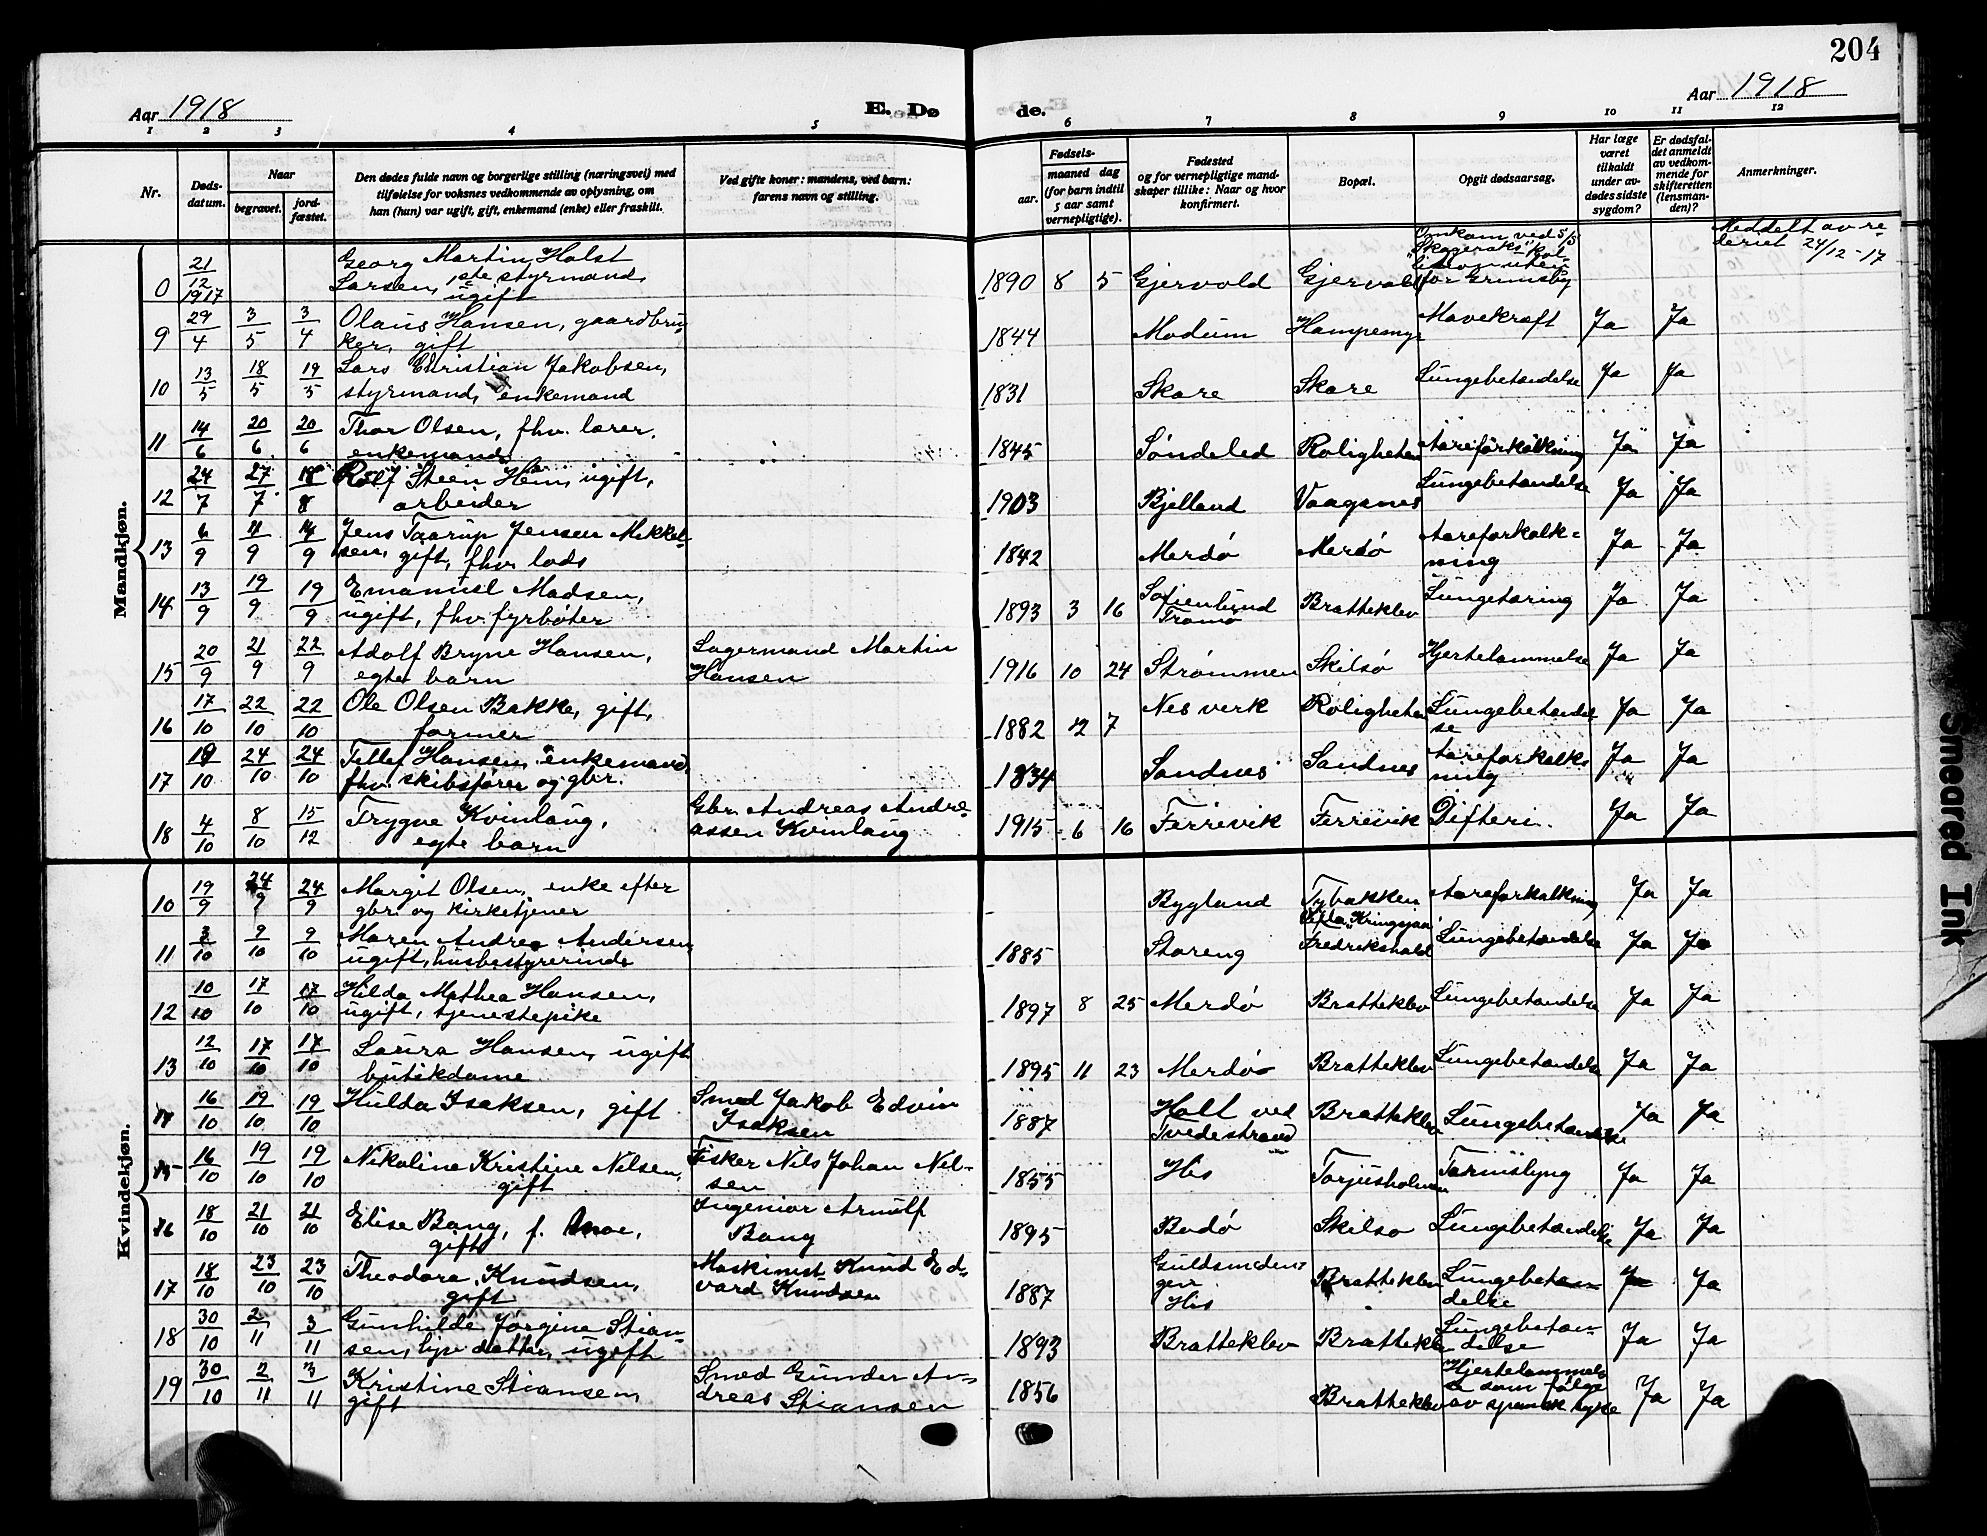 204
Aar 1918
E. Dø
de.
Aar 1918
1 2 3 4 5 6 7 8 9 10 11 12
Nr.
Døds-
datum.
Naar
begravet.
jord-
fæstet.
Den dødes fulde navn og borgerlige stilling (næringsvei) med
tilføielse for voksnes vedkommende av oplysning, om
han (hun) var ugift, gift, enkemand (enke) eller fraskilt.
Ved gifte koner: mandens, ved barn:
farens navn og stilling.
Fødsels-
aar.
maaned dag
(for barn indtil
5 aar samt
vernepligtige).
Fødested
og for vernepligtige mand-
skaper tillike: Naar og hvor
konfirmert.
Bopæl.
Opgit dødsaarsag.
Har læge
været
tilkaldt
under av-
dødes sidste
sygdom?
Er dødsfal-
det anmeldt
av vedkom-
mende for
skifteretten
(lensman-
den)?
Anmerkninger.
Mandkjøn.
0 21/12 1917 Georg Martin Holst
Larsen, 1ste styrmand,
ugift
1890 8 5 Gjervold Gjervold
Omkom ved S/S
"Skageraks" kol-
lision uten-
for Grimsby
Meddelt av re-
deriet 24/12-17
9 29/4 3/5 3/4 Olaus Hansen, gaardbru-
ker, gift
1844 Modum Hampemyr Mavekræft Ja Ja
10 13/5 18/5 19/5 Lars Christian Jakobsen,
styrmand, enkemand
1831 Skare Skare Lungebetændelse Ja Ja
11 14/6 20/6 20/6 Thor Olsen, fhv. lærer,
enkemand
1845 Søndeled Roligheten Aareforkalkning Ja Ja
12 24/7 27/7 18/8 Rolf Steen Hem, ugift,
arbeider
1903 Bjelland Vaagsnes Lungebetændelse Ja Ja
13 6/9 11/9 14/9 Jens Taarup Jensen Mikkel-
sen, gift, fhv. lods
1842 Merdø Merdø Aareforkalk-
ning Ja Ja
14 13/9 19/9 19/9 Emanuel Madsen,
ugift, fhv. fyrbøter
1893 3 16 Sofienlund
Tromø Bratteklev Lungetæring Ja Ja
15 20/9 21/9 22/9 Adolf Bryne Hansen,
egte barn
Lagermand Martin
Hansen
1916 10 24 Strømmen Skilsø Hjertelammelse Ja Ja
16 17/10 22/10 22/10 Ole Olsen Bakke, gift,
former
1882 12 7 Nes verk Roligheten Lungebetændel-
se Ja Ja
17 19/10 24/10 24/10 Tellef Hansen, enkemand,
fhv. skibsfører og gbr.
1834 Sandnes Sandnes Aareforkalk-
ning Ja Ja
18 4/10 8/10 15/12 Trygve Kvinlaug,
egte barn
Gbr. Andreas Andre-
assen Kvinlaug
1915 6 16 Ferrevik Ferrevik Difteri. Ja Ja
Kvindekjøn.
10 19/9 24/9 24/9 Margit Olsen, enke efter
gbr. og kirketjener
Bygland Tybakken Aareforkalkning Ja Ja
11 3/10 9/10 9/10 Maren Andrea Andersen,
ugift, husbestyrerinde
1885 Støreng
"Kringsjaa"
Fredrikshald Lungebetændelse Ja Ja
12 10/10 17/10 17/10 Hilda Mathea Hansen,
ugift, tjenestepike
1897 8 25 Merdø Bratteklev Lungebetændelse Ja Ja
13 12/10 17/10 17/10 Laura Hansen, ugift
butikdame
1895 11 23 Merdø Bratteklev Lungebetændelse Ja Ja
14 16/10 19/10 19/10 Hulda Isaksen, gift
Smed Jakob Edvin
Isaksen
1887 Holt ved
Tvedestrand Bratteklev Lungebetændelse Ja Ja
15 16/10 19/10 19/10 Nikoline Kristine Nilsen,
gift
Fisker Nils Johan Nil-
sen
1855 His Torjusholmen Tarmslyng Ja Ja
16 18/10 21/10 21/10 Elise Bang, f. Moe,
gift
Ingeniør Arnulf
Bang
1895 Bodø Skilsø Lungebetændelse Ja Ja
17 18/10 23/10 23/10 Theodora Knudsen,
gift
Maskinist Knud Ed-
vard Knudsen
1887 Guldsmeden-
gen
His Bratteklev Lungebetæn-
delse Ja Ja
18 30/10 2/11 3/11 Gunhilde Jørgine Stian-
sen, hjv. datter, ugift
1893 Bratteklev Bratteklev Lungebetæn-
delse Ja Ja
19 30/10 2/11 3/11 Kristine Stiansen,
gift
Smed Gunder An-
dreas Stiansen
1856 Bratteklev Hjertelammel-
se som følge
av spansk syke Ja Ja
Smeared Ink